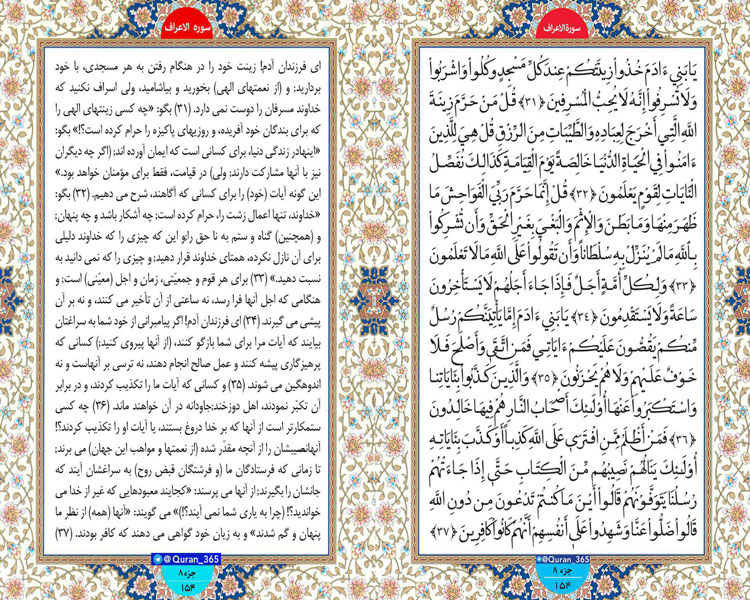 سورة الاعراف
يَا بَنِي ءَادَمَ خُذُوا زِينَتَكُمْ عِندَ كُلِّ مَسْجِدٍ وَكُلُوا وَاشْرَبُوا
وَلَا تُسْرِفُوا إِنَّهُ لَا يُحِبُّ الْمُسْرِفِينَ ﴿۳۱﴾ قُلْ مَنْ حَرَّمَ زِينَةَ
اللَّهِ الَّتِي أَخْرَجَ لِعِبَادِهِ وَالطَّيِّبَاتِ مِنَ الرِّزْقِ قُلْ هِيَ لِلَّذِينَ
ءَامَنُوا فِي الْحَيَاةِ الدُّنْيَا خَالِصَةً يَوْمَ الْقِيَامَةِ كَذَالِكَ نُفَصِّلُ
الْآيَاتِ لِقَوْمٍ يَعْلَمُونَ ﴿۳۲﴾ قُلْ إِنَّمَا حَرَّمَ رَبِّيَ الْفَوَاحِشَ مَا
ظَهَرَ مِنْهَا وَمَا بَطَنَ وَالْإِثْمَ وَالْبَغْيَ بِغَيْرِ الْحَقِّ وَأَن تُشْرِكُوا
بِاللَّهِ مَا لَمْ يُنَزِّلْ بِهِ سُلْطَانًا وَأَن تَقُولُوا عَلَى اللَّهِ مَا لَا تَعْلَمُونَ
﴿۳۳﴾ وَلِكُلِّ أُمَّةٍ أَجَلٌ فَإِذَا جَاءَ أَجَلُهُمْ لَا يَسْتَأْخِرُونَ
سَاعَةً وَلَا يَسْتَقْدِمُونَ ﴿۳۴﴾ يَا بَنِي ءَادَمَ إِمَّا يَأْتِيَنَّكُمْ رُسُلٌ
مِّنكُمْ يَقُصُّونَ عَلَيْكُمْ ءَايَاتِي فَمَنِ اتَّقَى وَأَصْلَحَ فَلَا
خَوْفٌ عَلَيْهِمْ وَلَا هُمْ يَحْزَنُونَ ﴿۳۵﴾ وَالَّذِينَ كَذَّبُوا بِئَايَاتِنَا
وَاسْتَكْبَرُوا عَنْهَا أُولَئِكَ أَصْحَابُ النَّارِ هُمْ فِيهَا خَالِدُونَ
﴿۳۶﴾ فَمَنْ أَظْلَمُ مِمَّنِ افْتَرَى عَلَى اللَّهِ كَذِبًا أَوْ كَذَّبَ بِئَايَاتِهِ
أُولَئِكَ يَنَالُهُمْ نَصِيبُهُم مِّنَ الْكِتَابِ حَتَّى إِذَا جَاءَتْهُمْ
رُسُلُنَا يَتَوَفَّوْنَهُمْ قَالُوا أَيْنَ مَا كُنتُمْ تَدْعُونَ مِن دُونِ اللَّهِ
قَالُوا ضَلُّوا عَنَّا وَشَهِدُوا عَلَى أَنفُسِهِمْ أَنَّهُمْ كَانُوا كَافِرِينَ ﴿۳۷﴾
@Quran_365
جزء ۸
۱۵۴
سوره الاعراف
ای فرزندان آدم! زینت خود را در هنگام رفتن به هر مسجدی، با خود
بردارید: و (از نعمتهای الهی) بخورید و بیاشامید، ولی اسراف نکنید که
خداوند مسرفان را دوست نمی دارد. (۳۱) بگو: «چه کسی زینتهای الهی را
که برای بندگان خود آفریده، و روزیهای پاکیزه را حرام کرده است؟!» بگو:
«اینهادر زندگی دنیا، برای کسانی است که ایمان آورده اند: (اگر چه دیگران
نیز با آنها مشارکت دارند: ولی) در قیامت، فقط برای مؤمنان خواهد بود.»
این گونه آیات (خود) را برای کسانی که آگاهند، شرح می دهیم. (۳۲) بگو:
«خداوند، تنها اعمال زشت را، حرام کرده است: چه آشکار باشد و چه پنهان:
و (همچنین) گناه و ستم به نا حق را: و این که چیزی را که خداوند دلیلی
برای آن نازل نکرده، همتای خداوند قرار دهید: و چیزی را که نمی دانید به
نسبت دهید.» (۳۳) برای هر قوم و جمعیّتی، زمان و اجل (معیّنی) است: و
هنگامی که اجل آنها فرا رسد، نه ساعتی از آن تأخیر می کنند، و نه بر آن
پیشی می گیرند. (۳۴) ای فرزندان آدم! اگر پیامبرانی از خود شما به سراغتان
بیایند که آیات مرا برای شما بازگو کنند، (از آنها پیروی کنید:) کسانی که
پرهیزگاری پیشه کنند و عمل صالح انجام دهند، نه ترسی بر آنهاست و نه
اندوهگین می شوند. (۳۵) و کسانی که آیات ما را تکذیب کردند، و در برابر
آن تکبّر نمودند، اهل دوزخند:جاودانه در آن خواهند ماند. (۳۶) چه کسی
ستمکارتر است از آنها که بر خدا دروغ بستند، یا آیات او را تکذیب کردند؟!
آنهانصیبشان را از آنچه مقدّر شده (از نعمتها و مواهب این جهان) می برند:
تا زمانی که فرستادگان ما (و فرشتگان قبض روح) به سراغشان آیند که
جانشان را بگیرند: از آنها می پرسند: «کجایند معبودهایی که غیر از خدا می
خواندید؟! (چرا به یاری شما نمی آیند؟!)» می گویند: «آنها (همه) از نظر ما
پنهان و گم شدند» و به زبان خود گواهی می دهند که کافر بودند. (۳۷)
@Quran_365
جزء ۸
۱۵۴